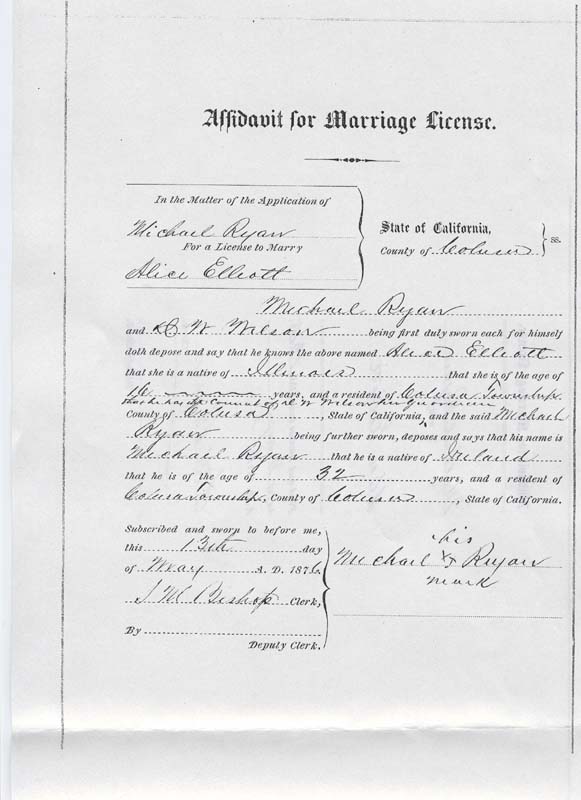 Affidavit for Marriage License.
In the Matter of the Application of
Michael Ryan
For a License to Marry
Alice Elliott
State of California,
County of Colusa } ss.
Michael Ryan
and W Wilson being first duly sworn each for himself
doth depose and say that he knows the above named Alice Elliott
that she is a native of Illinois that she is of the age of
16 years, and a resident of Colusa Township
that he has the consent of W Wilson her guardian
County of Colusa, State of California, and the said Michael
Ryan being further sworn, deposes and says that his name is
Michael Ryan that he is a native of Ireland
that he is of the age of 32 years, and a resident of
Colusa Township, County of Colusa, State of California.
Subscribed and sworn to before me,
this 13th day
of May A. D. 1876
J M Bishop Clerk,
By
Deputy Clerk.
his
Michael X Ryan
mark